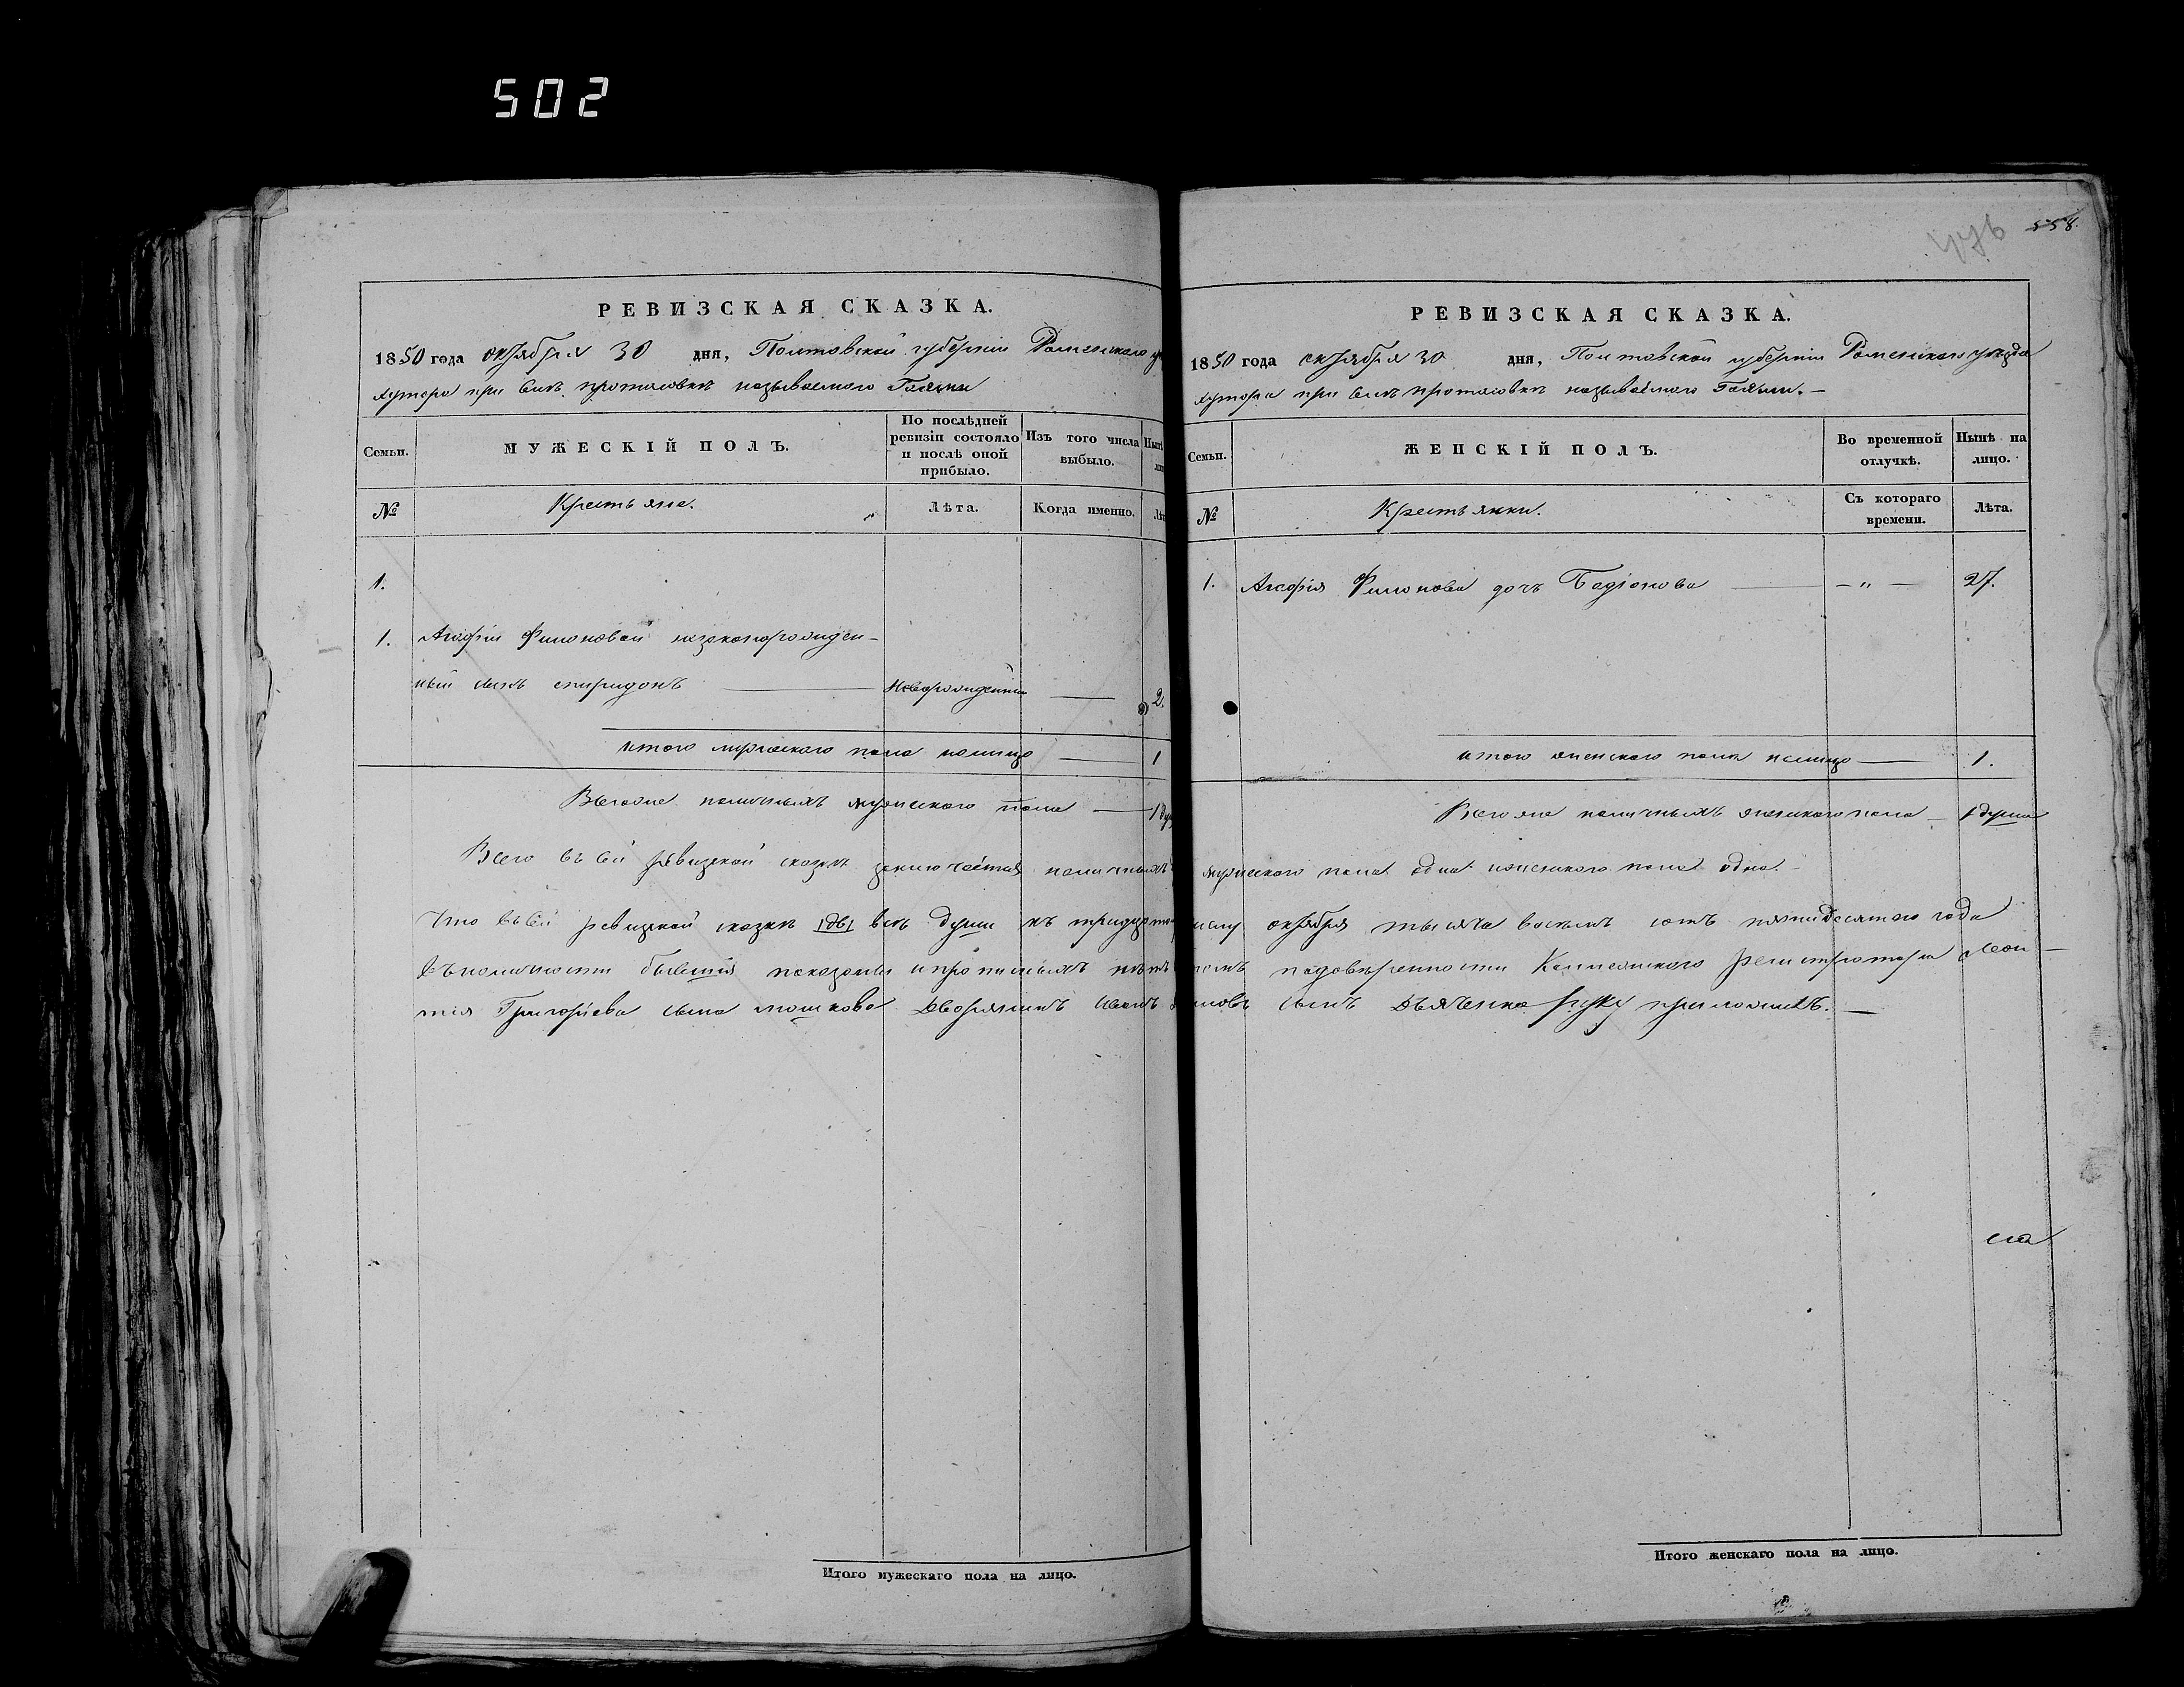 502
558.
РЕВИЗСКАЯ СКАЗКА.
1850 года октября 30 дня, Полтавской губерніи Роменского
хутора при селѣ называемого
Семьи.
МУЖЕСКІЙ ПОЛЪ.
По послѣдней ревизіи состояло и послѣ оной прибыло.
Изъ того числа выбыло.
№
Крестьяне.
Лѣта.
Когда именно.
1.
1. Агафіи Филоновой незаконорожден-
ный сынъ спиридонъ — новорожденный — 2.
итого мужеского пола налицо — 1
Всегоже наличныхъ мужеского пола — 1
РЕВИЗСКАЯ СКАЗКА.
1850 года октября 30 дня, Полтавской губерніи Роменского уезда
хутора при селѣ называемого
Семьи.
ЖЕНСКІЙ ПОЛЪ.
Во временной отлучкѣ.
Нынѣ на лицо.
№
Крестьянки.
Съ котораго времени.
Лѣта.
1. Агафія Филонова дочь — „ — 27.
итого женского пола налицо — 1.
Всегоже наличныхъ женского пола — 1 душа
Всего въ сей ревизской сказке заключается наличныхъ мужеского пола одна иженского пола одна.
Что въ сей ревизской сказке всѣ души къ октября тысяча восемъ сотъ пятидесятого года
въналичности показаны ипрописныхъ нѣтъ подовѣренности регистратора Леон-
тія Григорьева сына Дворянинъ сынъ Дьяченко руку приложилъ. —
Итого мужескаго пола на лицо.
Итого женскаго пола на лицо.